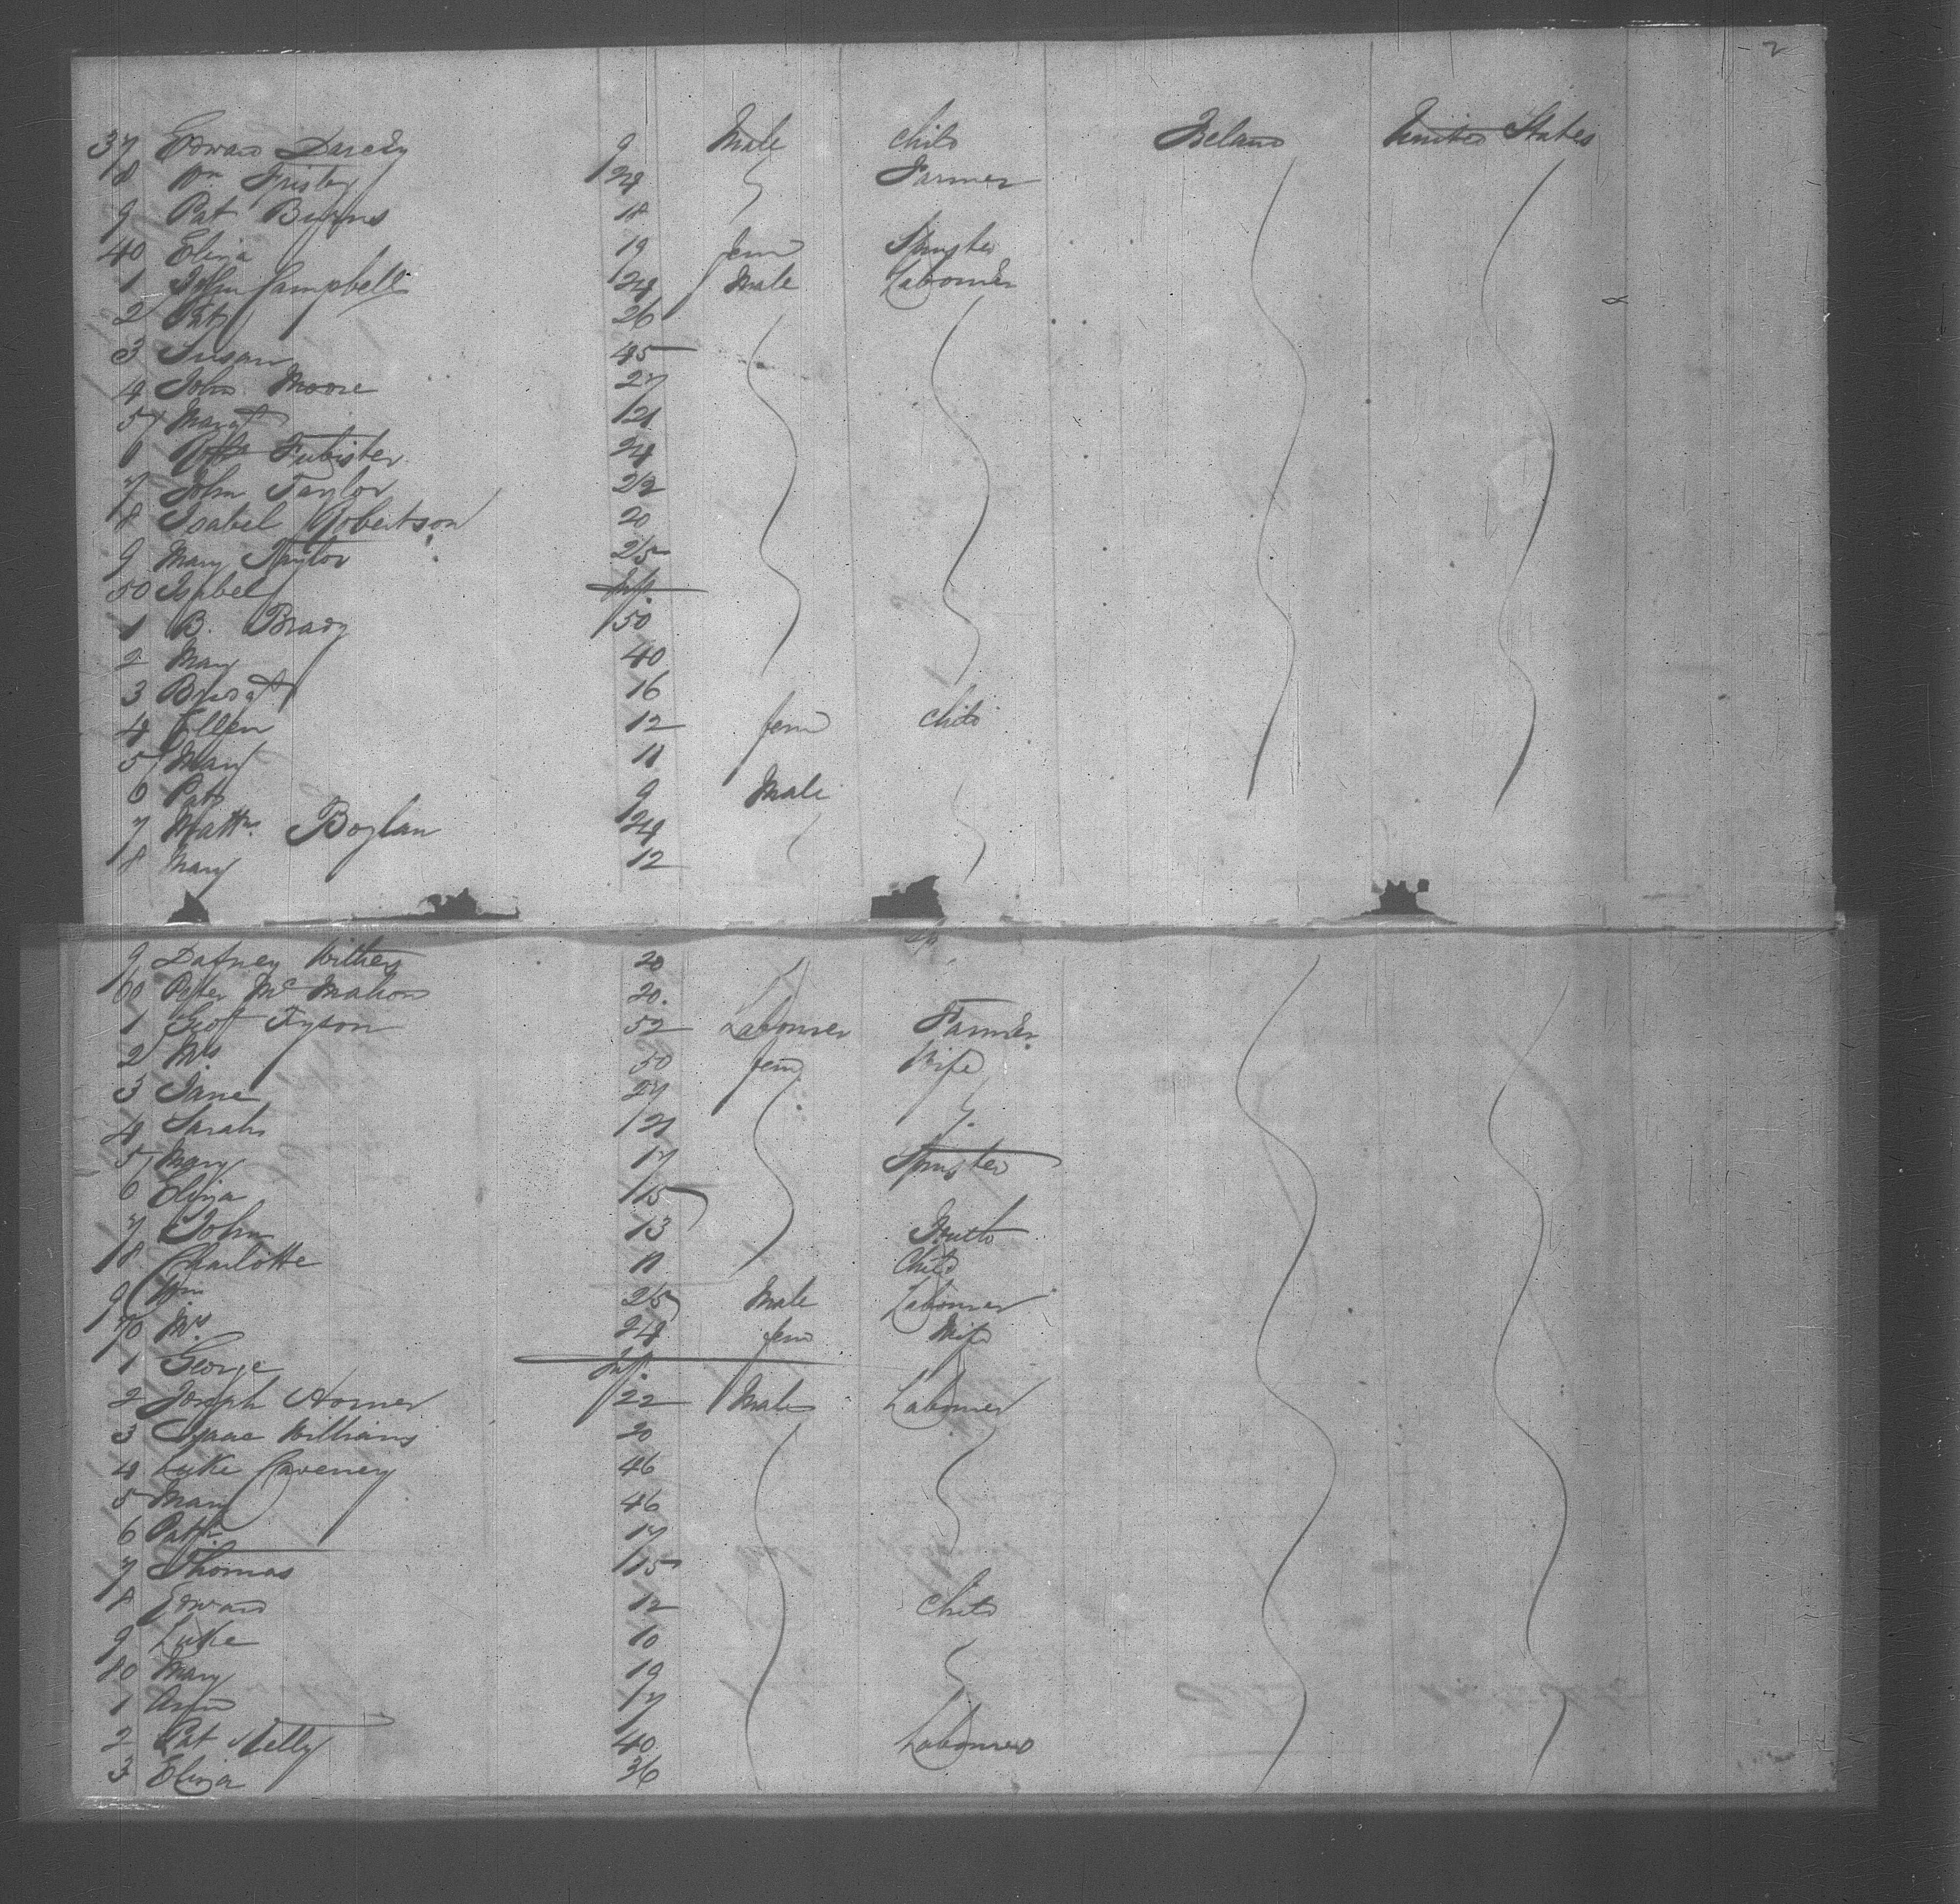 2
37 Edward Darcey 9 Male Child Ireland United States
8 Wm Frisby 24 Farmer
9 Pat Burns 18
40 Eliza 19 fem Spinster
1 John Campbell 24 Male Labourer
2 Pat 26
3 Susan 45
4 John Moore 27
5 Margt 21
6 Fubister 24
7 John Taylor 22
8 Isabel Robertson 20
9 Mary Taylor 25
50 Isabel Inft
1 B. Brady 50
2 Mary 40
3 Bridgt 16
4 Ellen 12 fem Child
5 Mary 11
6 Pat 9 Male
7 Matthw Boylan 24
8 Mary 12
9 Dafney Withers 20
60 Peter McMahon 20
1 Geo Tyson 52 Labourer Farmer
2 Mrs 50 fem Wife
3 Jane 27
4 Sarah 21
5 Mary 17 Spinster
6 Eliza 15
7 John 13
8 Charlotte 11 Child
9 Wm 25 Male Labourer
70 Mrs 24 fem Wife
1 George Inft
2 Joseph Horner 22 Male Labourer
3 Isaac Williams 20
4 Luke Caveney 46
5 Mary 46
6 Patk 17
7 Thomas 15
8 Edward 12 Child
9 Luke 10
80 Mary 19
1 Ann 17
2 Pat Kelly 40 Labourer
3 Eliza 36